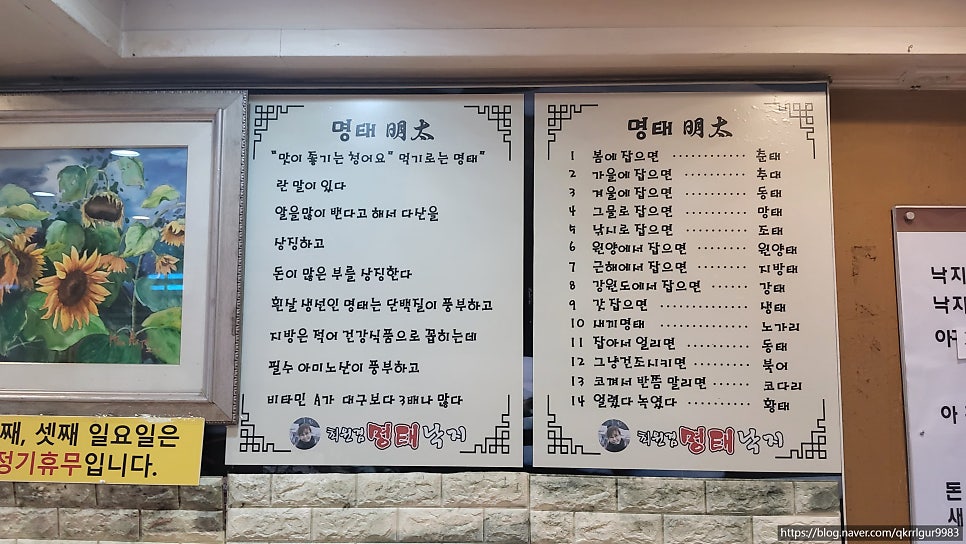 명태 明太
"맛이 좋기는 청어요" 먹기로는 명태"
란 말이 있다
알을많이 밴다고 해서 다산을
상징하고
돈이 많은 부를 상징한다
흰날 생선인 명태는 단백질이 풍부하고
지방은 적어 건강식품으로 꼽히는데
필수 아미노산이 풍부하고
비타민 A가 대구보다 3배나 많다
최원검 명태낙지
명태 明太
1 봄에 잡으면 ············ 춘태
2 가을에 잡으면 ·········· 추태
3 겨울에 잡으면 ·········· 동태
4 그물로 잡으면 ·········· 망태
5 낚시로 잡으면 ·········· 조태
6 원양에서 잡으면 ········ 원양태
7 근해에서 잡으면 ········ 지방태
8 강원도에서 잡으면 ······ 강태
9 갓 잡으면 ············· 생태
10 새끼명태 ············· 노가리
11 잡아서 얼리면 ········· 동태
12 그냥건조시키면 ········ 북어
13 코껴서 반쯤 말리면 ······ 코다리
14 얼렸다 녹였다 ········· 황태
최원검 명태낙지
째, 셋째 일요일은
정기휴무입니다.
낙지
낙지
아
아
돈
새
https://blog.naver.com/qkrrlgur9983